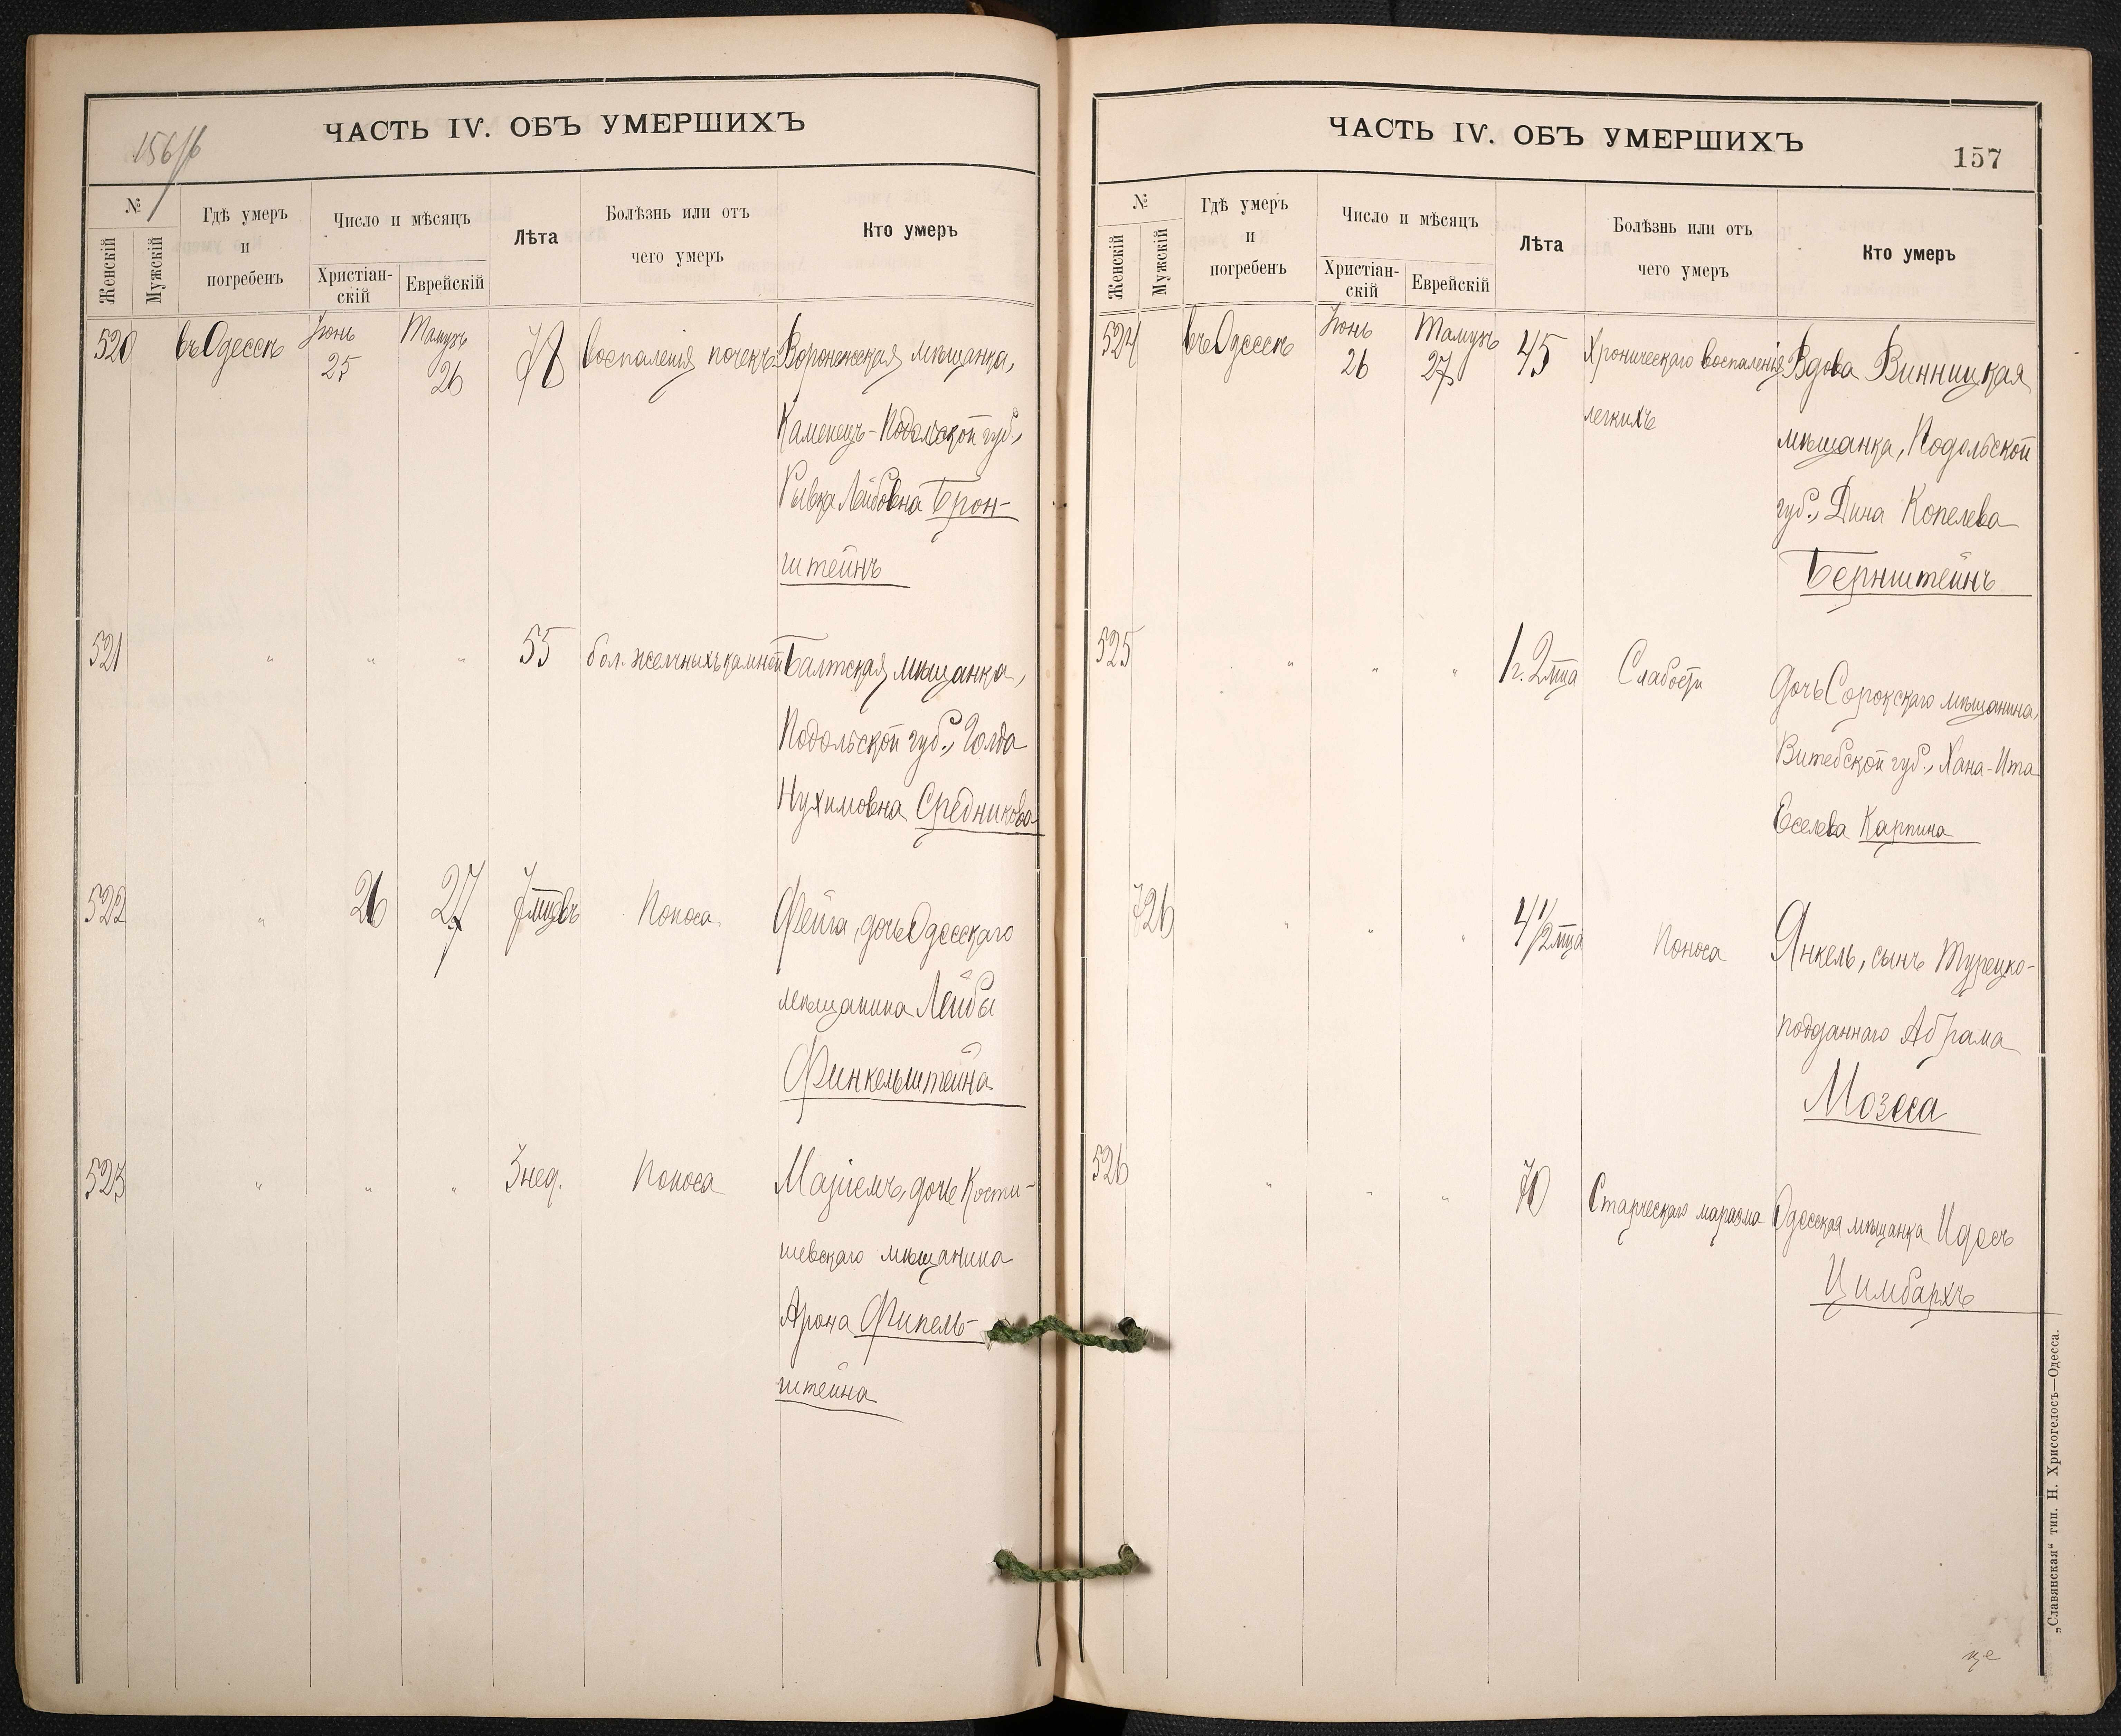 156/б
ЧАСТЬ IV. ОБЪ УМЕРШИХЪ
№
Женскій
Мужскій
Гдѣ умеръ
и
погребенъ
Число и мѣсяцъ
Христіан-
скій
Еврейскій
Лѣта
Болѣзнь или отъ
чего умеръ
Кто умеръ
520 въ Одессѣ Іюнь 25 Тамузъ 26 воспаленія почекъ Воронежская мѣщанка,
Каменецъ-Подольской губ.,
Рывка Лейбовна Брон-
штейнъ
521 " " " 55 бол. желчныхъ камней Балтская мѣщанка,
Подольской губ., Голда
Нухимовна Средникова
522 " 26 27 7 мцвъ Поноса Фейга, дочь Одесскаго
мѣщанина Лейбы
Финкельштейна
523 " " " 3 нед. Поноса Маріемъ, дочь Кости-
шевскаго мѣщанина
Арона Финель-
штейна
ЧАСТЬ IV. ОБЪ УМЕРШИХЪ
157
№
Женскій
Мужскій
Гдѣ умеръ
и
погребенъ
Число и мѣсяцъ
Христіан-
скій
Еврейскій
Лѣта
Болѣзнь или отъ
чего умеръ
Кто умеръ
524 въ Одессѣ Іюнь 26 Тамузъ 27 45 Хроническаго воспаленія Вдова Винницкая
легкихъ
мѣщанка, Подольской
губ., Дина Копелева
Бернштейнъ
525 " " " 1 г. 2 мца Слабости Дочь Сорокскаго мѣщанина,
Витебской губ., Хана-Ита
Еселева Карпина
726 " " " 4 1/2 мца Поноса Янкель, сынъ Турецко-
подданнаго Абрама
Мозеса
526 " " " 70 Старческаго маразма Одесская мѣщанка Идесъ
Цимбархъ
„Славянская“ тип. Н. Хрисогелосъ—Одесса.